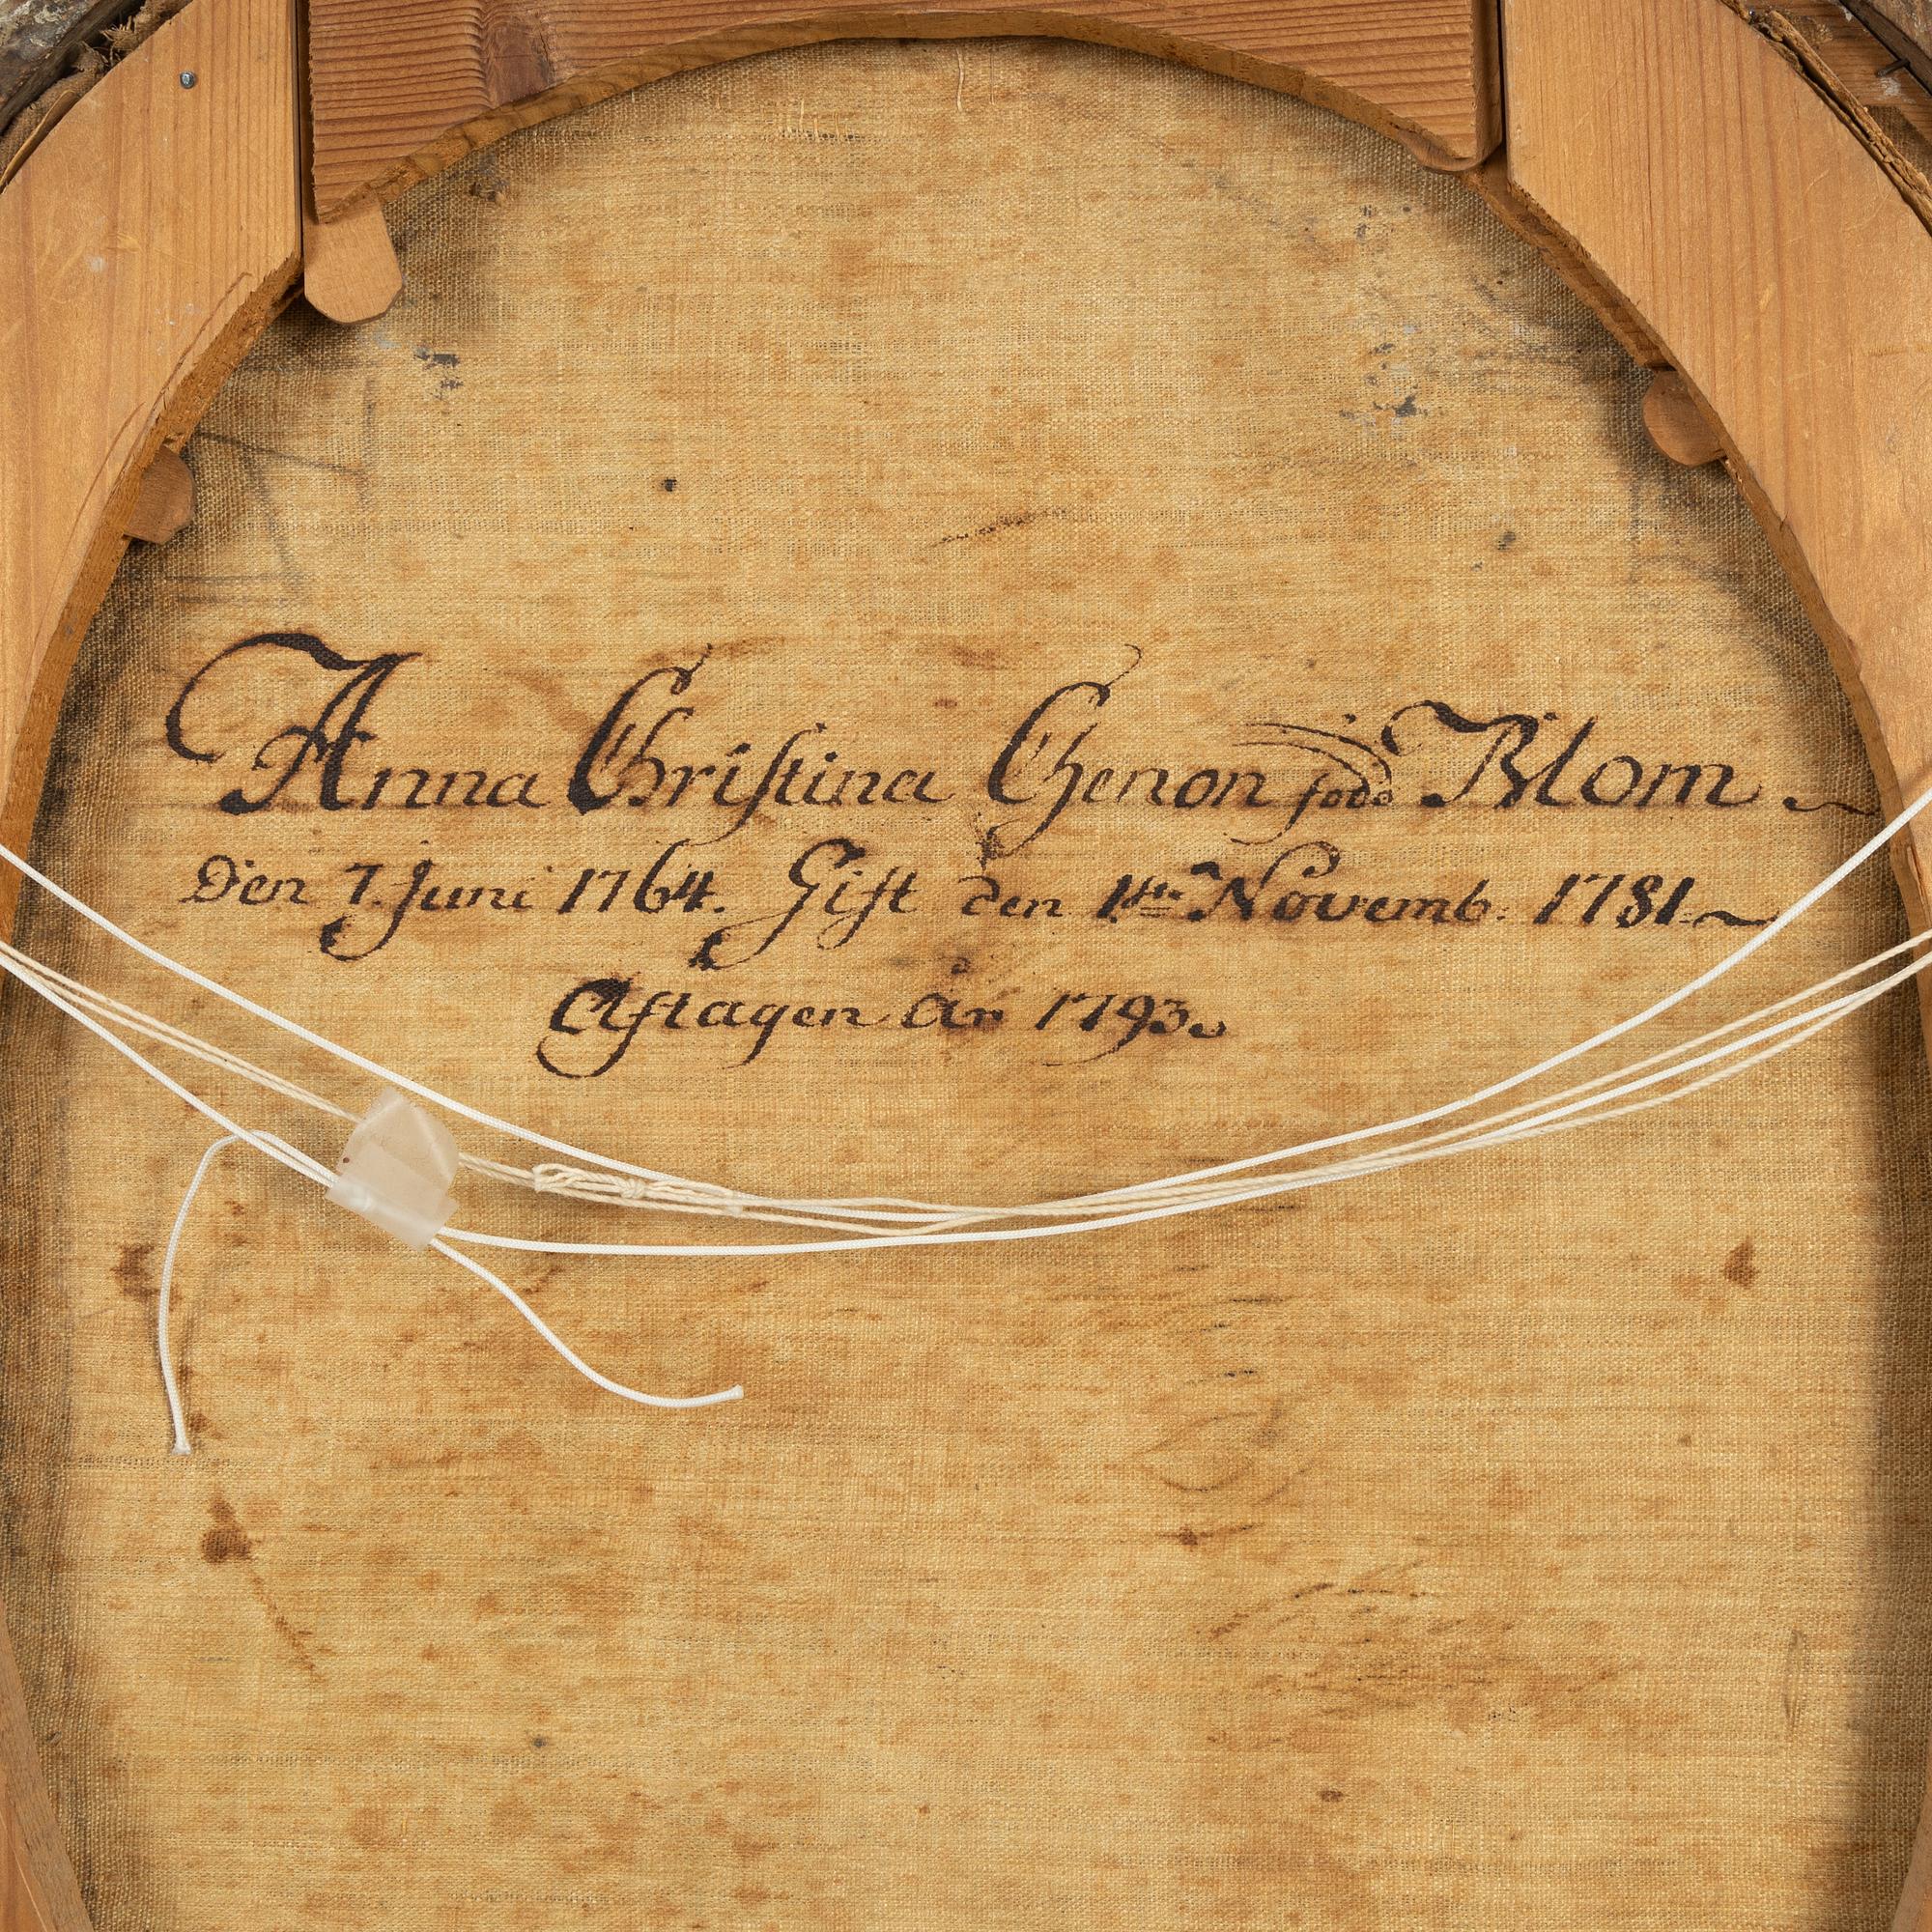 Anna Christina Chenon född Blom
Den 7. Juni 1764. Gift den 1ste Novemb. 1781
Aftagen år 1793.